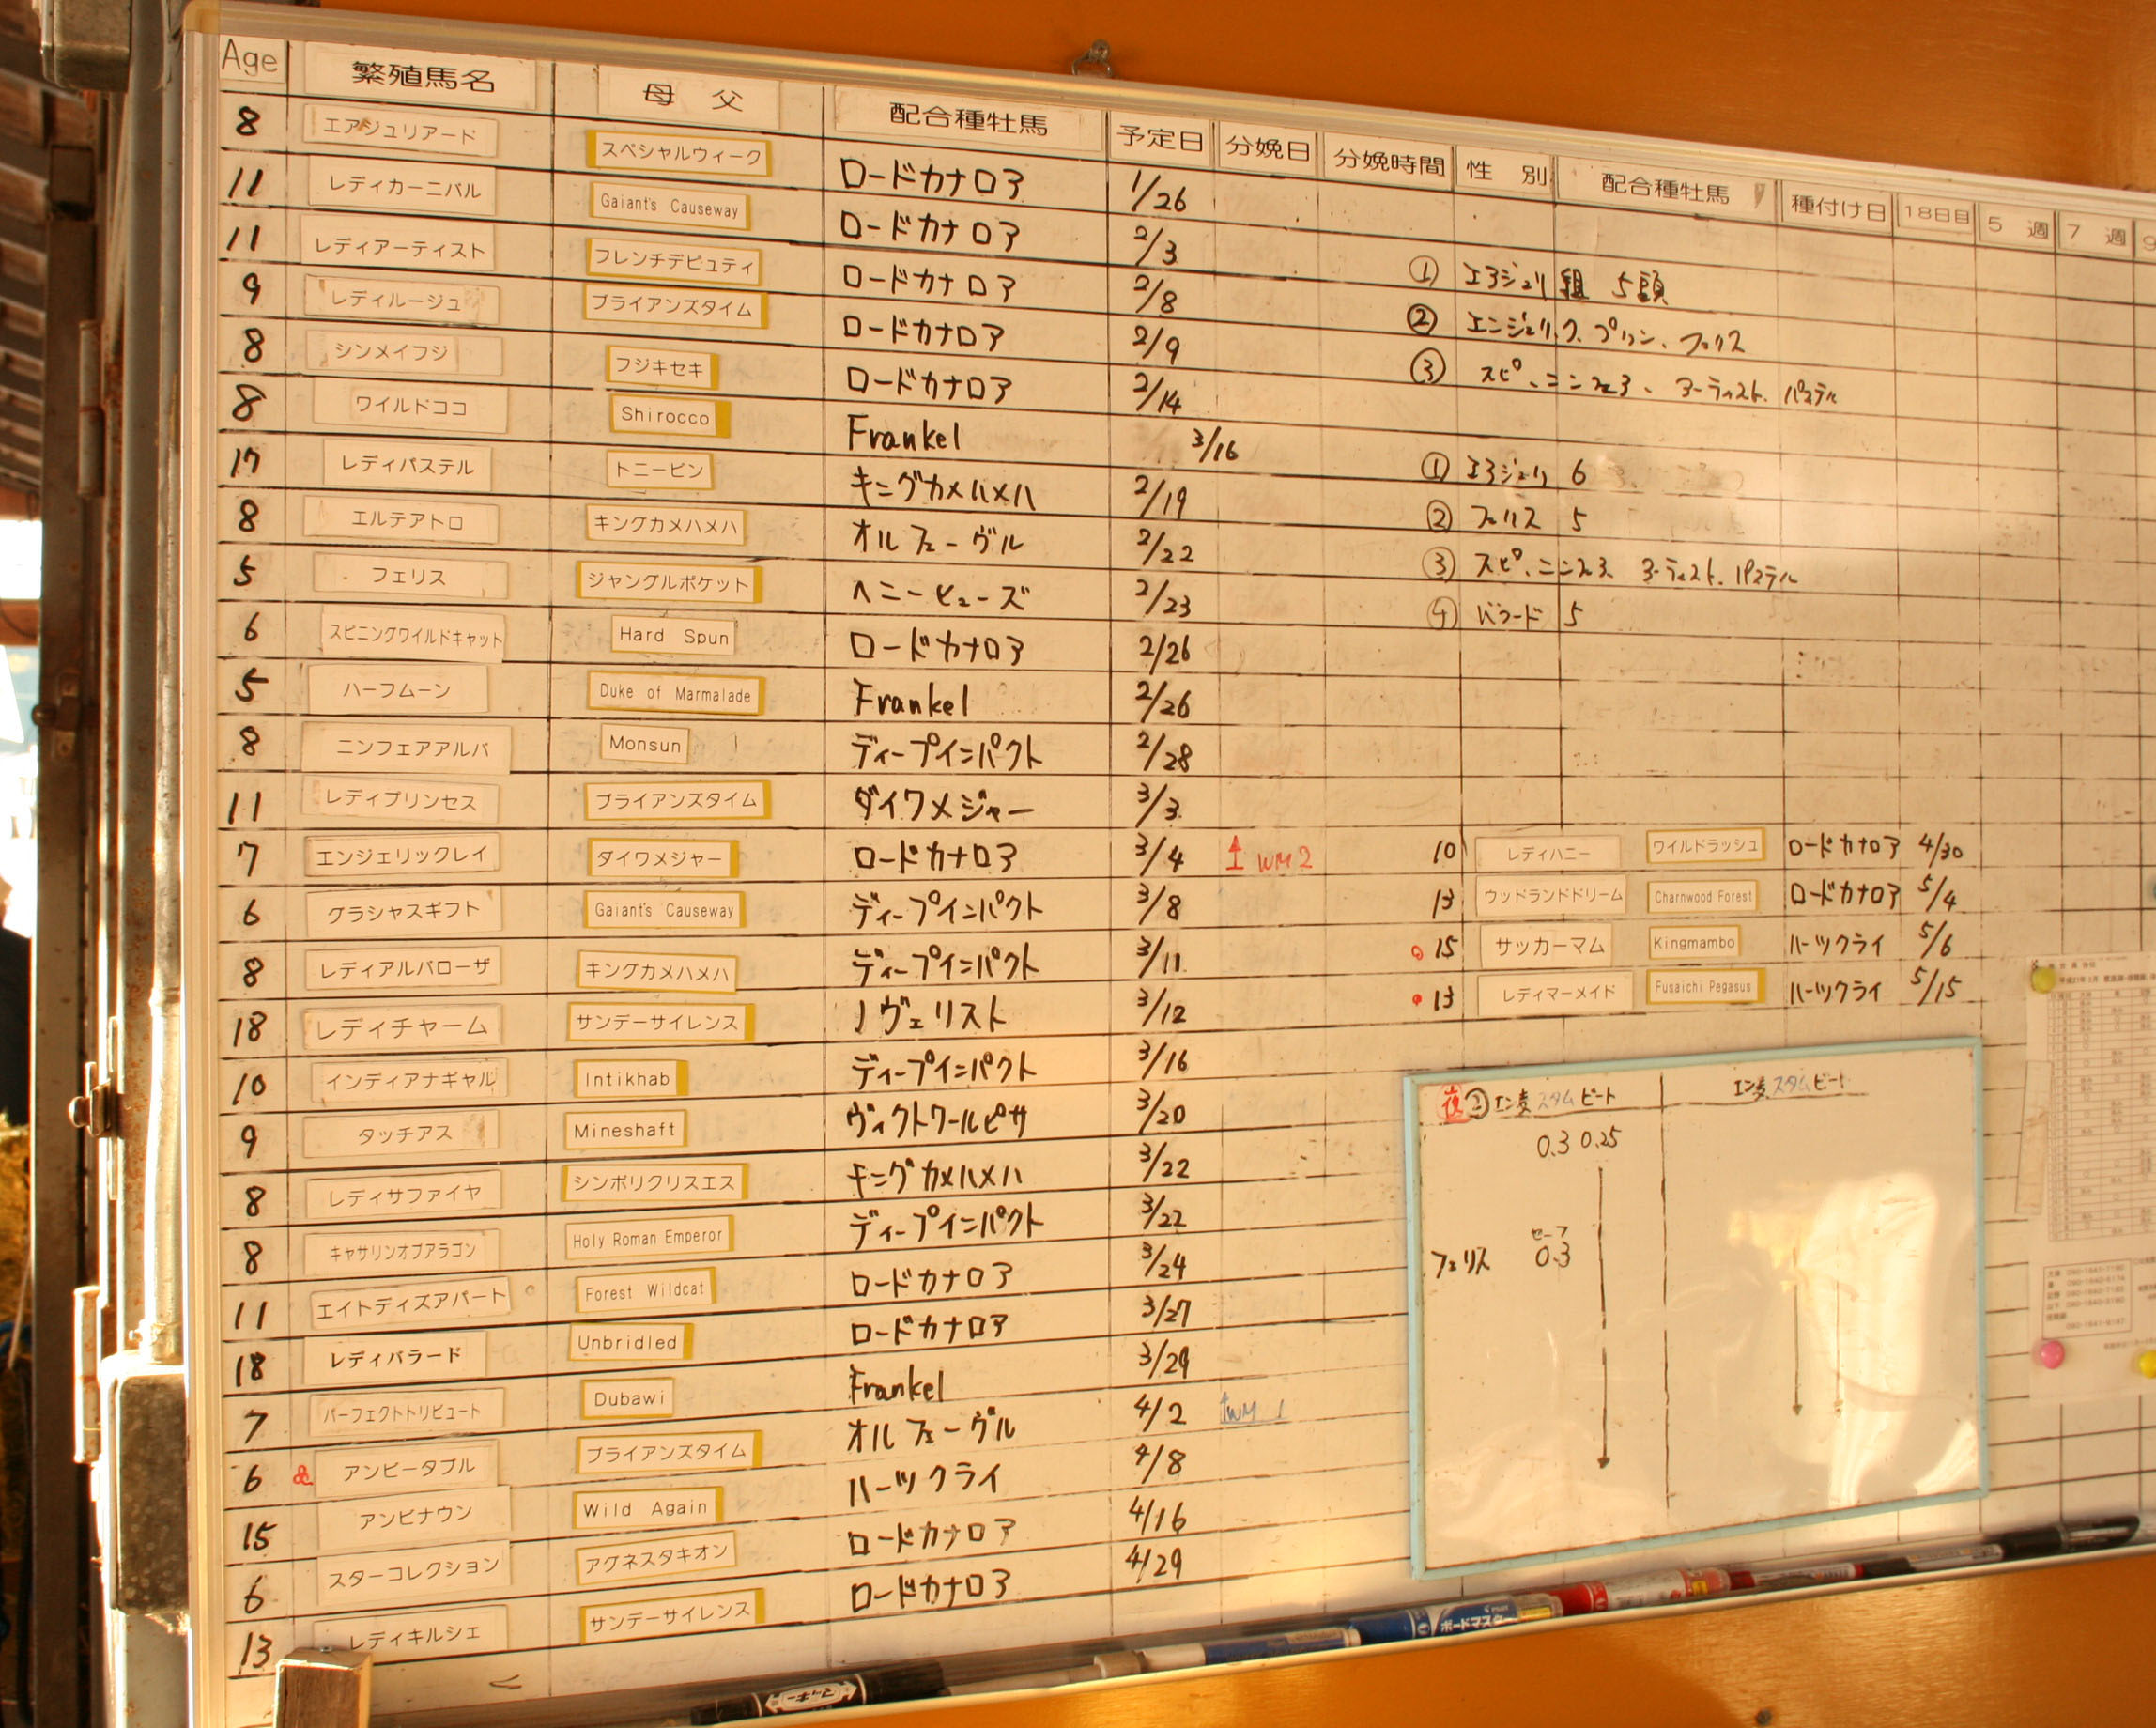 Age 繁殖馬名 母父 配合種牡馬 予定日 分娩日 分娩時間 性別 配合種牡馬 種付け日 18日目 5週 7週 9
8 エアジュリアード スペシャルウィーク ロードカナロア 1/26
11 レディカーニバル Gaiant's Causeway ロードカナロア 2/3
11 レディアーティスト フレンチデピュティ ロードカナロア 2/8 ① エアジュリ組 5頭
9 レディルージュ ブライアンズタイム ロードカナロア 2/9 ② エンジェリック、プリン、フェリス
8 シンメイフジ フジキセキ ロードカナロア 2/14 ③ スピ、ニンフェア、アーティスト、パステル
8 ワイルドココ Shirocco Frankel 3/16
17 レディパステル トニービン キングカメハメハ 2/19 ① エアジュリ 6
8 エルテアトロ キングカメハメハ オルフェーヴル 2/22 ② フェリス 5
5 フェリス ジャングルポケット ヘニーヒューズ 2/23 ③ スピ、ニンフェア、アーティスト、パステル
6 スピニングワイルドキャット Hard Spun ロードカナロア 2/26 ④ バラード 5
5 ハーフムーン Duke of Marmalade Frankel 2/26
8 ニンフェアアルバ Monsun ディープインパクト 2/28
11 レディプリンセス ブライアンズタイム ダイワメジャー 3/3
7 エンジェリックレイ ダイワメジャー ロードカナロア 3/4 ↑ WM2 10 レディハニー ワイルドラッシュ ロードカナロア 4/30
6 グラシャスギフト Gaiant's Causeway ディープインパクト 3/8 13 ウッドランドドリーム Charnwood Forest ロードカナロア 5/4
8 レディアルバローザ キングカメハメハ ディープインパクト 3/11 15 サッカーマム Kingmambo ハーツクライ 5/6
18 レディチャーム サンデーサイレンス ノヴェリスト 3/12 13 レディマーメイド Fusaichi Pegasus ハーツクライ 5/15
10 インディアナギャル Intikhab ディープインパクト 3/16
9 タッチアス Mineshaft ヴィクトワールピサ 3/20
8 レディサファイヤ シンボリクリスエス キングカメハメハ 3/22
8 キャサリンオブアラゴン Holy Roman Emperor ディープインパクト 3/22
11 エイトディズアパート Forest Wildcat ロードカナロア 3/24
18 レディバラード Unbridled ロードカナロア 3/27
7 パーフェクトトリビュート Dubawi Frankel 3/29
6 アンビータブル ブライアンズタイム オルフェーヴル 4/2 ↑WM 1
15 アンビナウン Wild Again ハーツクライ 4/8
6 スターコレクション アグネスタキオン ロードカナロア 4/16
13 レディキルシェ サンデーサイレンス ロードカナロア 4/29
夜 ② エン麦 スタム ビート エン麦 スタム ビート
0.3 0.25
セーフ
フェリス 0.3
ボードマスター
マッキー